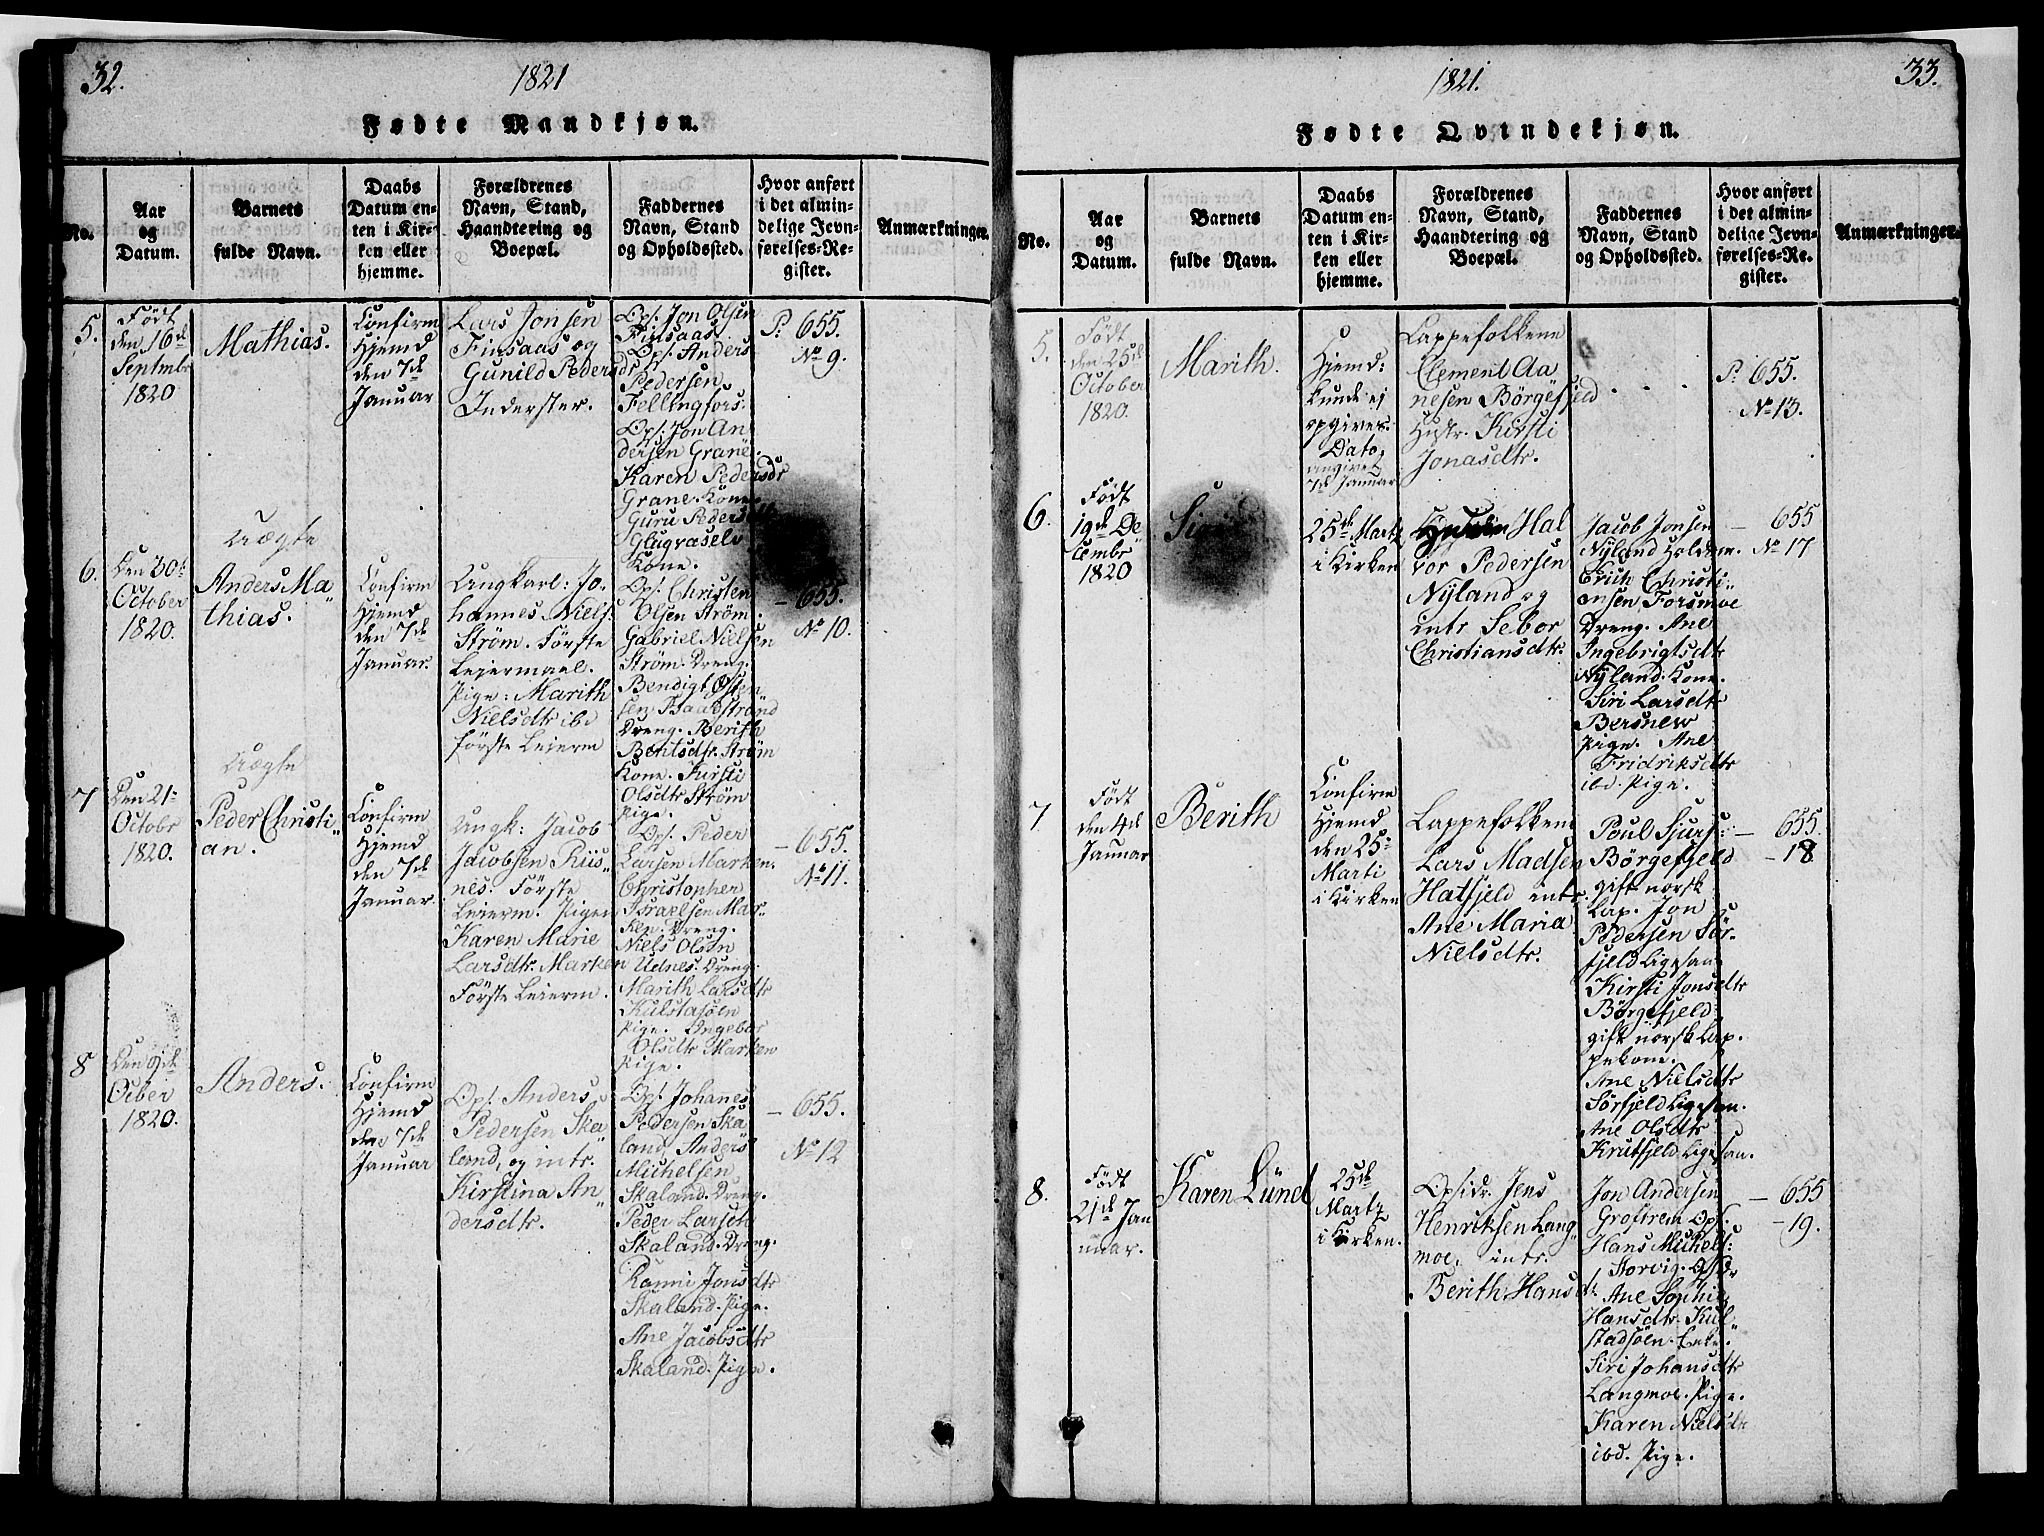 32.
1821
Fødte Mandkjøn.
No.
Aar
og
Datum.
Barnets
fulde Navn.
Daabs
Datum en-
ten i Kir-
ken eller
hjemme.
Forældrenes
Navn, Stand,
Haandtering og
Boepæl.
Faddernes
Navn, Stand
og Opholdssted.
Hvor anført
i det almin-
delige Jevn-
førelses-Re-
gister.
Anmærkninger.
5.
Födt
den 16de
Septmbr
1820
Mathias.
Confirm
Hjemd
den 7de
Januar
Lars Jonsen
Finsaas og
Gunild Pedersdr
Inderster.
Ops. Jon Olsen
Finsaas,
Ops. Anders
Pedersen
Fellingfors:
Ops. Jon An
dersen Grane.
Karen Pedersdr
Grane Kone
Guru Pedersdtr
Glugvaselv
Kone.
P. 655.
No 9.
6.
Den 30te
October
1820.
Uægte
Anders Ma"
thias.
Confirm
Hjemd
den 7de
Januar.
Ungkarl: Jo-
hannes Niels:
Ström. Förste
Leiermaal.
Pige: Marith
Nielsdtr ibd
förste Leierm
Ops. Christen
Olsen Ström.
Gabriel Nielsen
Ström. Dreng.
Bendigt Østen
sen Baadstrand
Dreng. Berith
Bentsdtr. Ström
Kone. Kirsti
Olsdtr Ström
Pige.
- 655.
No 10.
7
Den 21de
Octobr
1820.
Uægte
Peder Christi"
an.
Confirm
Hjemd
den 7de
Januar.
Ungk: Jacob
Jacobsen Riis"
nes. Förste
Leierm. Pigen
Karen Marie
Larsdtr. Marken
Förste Leierm.
Ops. Peder
Larsen Marken.
Christopher
Israelsen Mar-
ken. Dreng.
Niels Olsen
Udnes. Dreng.
Marith Larsdtr
Kulstasöen
Pige. Ingebor
Olsdtr Marken
Pige.
- 655.
No 11.
8
Den 9de
Octber
1820.
Anders.
Confirm
Hjemd
den 7de
Januar
Ops. Anders
Pedersen Ska"
land, og intr.
Kirstina An"
dersdtr.
Ops. Johanes
Pedersen Ska
land, Anders
Michelsen
Skaland. Dreng.
Peder Larsen
Skaland. Dreng.
Ranni Jonsdtr
Skaland. Pige.
Ane Jacobsdtr
Skaland. Pige.
- 655.
No 12
33.
1821.
Fødte Qvindekjøn.
No.
Aar
og
Datum.
Barnets
fulde Navn.
Daabs
Datum en-
ten i Kir-
ken eller
hjemme.
Forældrenes
Navn, Stand,
Haandtering og
Boepæl.
Faddernes
Navn, Stand
og Opholdssted.
Hvor anført
i det almin-
delige Jevn-
førelses-Re-
gister.
Anmærkninger.
5.
Födt
den 25de
October
1820.
Marith.
Hjemd:
kunde ej
opgives
Dato,
angivet
7de Januar
Lappefolkene
Clement Aa
nesen Börgefjeld
Hustr. Kirsti
Jonasdtr.
P. 655.
No 13.
6.
Födt
19de De
cembr
1820
25de Marti
i Kirken
Hal
vor Pedersen
Nyland og
intr Sebor
Christiansdtr.
Jacob Jonsen
Nyland Holdem.
Erich Christi"
ansen, Forsmoe
Dreng. Ane
Ingebrigtsdtr
Nyland. Kone.
Siri Larsdtr
Bersnew
Pige. Ane
Fridriksdtr
ibd. Pige.
- 655
No 17
7.
Födt
den 4de
Januar
Berith
Confirm
Hjemd
den 25de
Marti
i Kirken
Lappefolkene
Lars Madsen
Hatfjeld intr.
Ane Maria
Nielsdtr.
Poul Sjurs:
Börgefjeld
gift norsk
Lap. Jon
Pedersen Sör-
fjeld ligesaa
Kirsti Jonsdtr
Börgefjeld
gift norsk Lap-
pekone.
Ane Nielsdtr
Sörfjeld ligesaa.
Ane Olsdtr
Krutfjeld ligesaa.
- 655.
- 18
8.
Födt
21de Jan
uuar.
Karen Lünd
25de
Martz
i Kirken.
Opsidr. Jens
Henriksen Lang"
moe, intr.
Berith Hansdr
Jon Andersen
Grostrem Ops.
Hans Michels:
Storvig. Opsidr
Ane Sophie
Hansdtr. Kul"
stadsöen. Enke.
Siri Johansdtr
Langmoe. Pige.
Karen Nielsdr
ibd. Pige.
- 655
- 19.